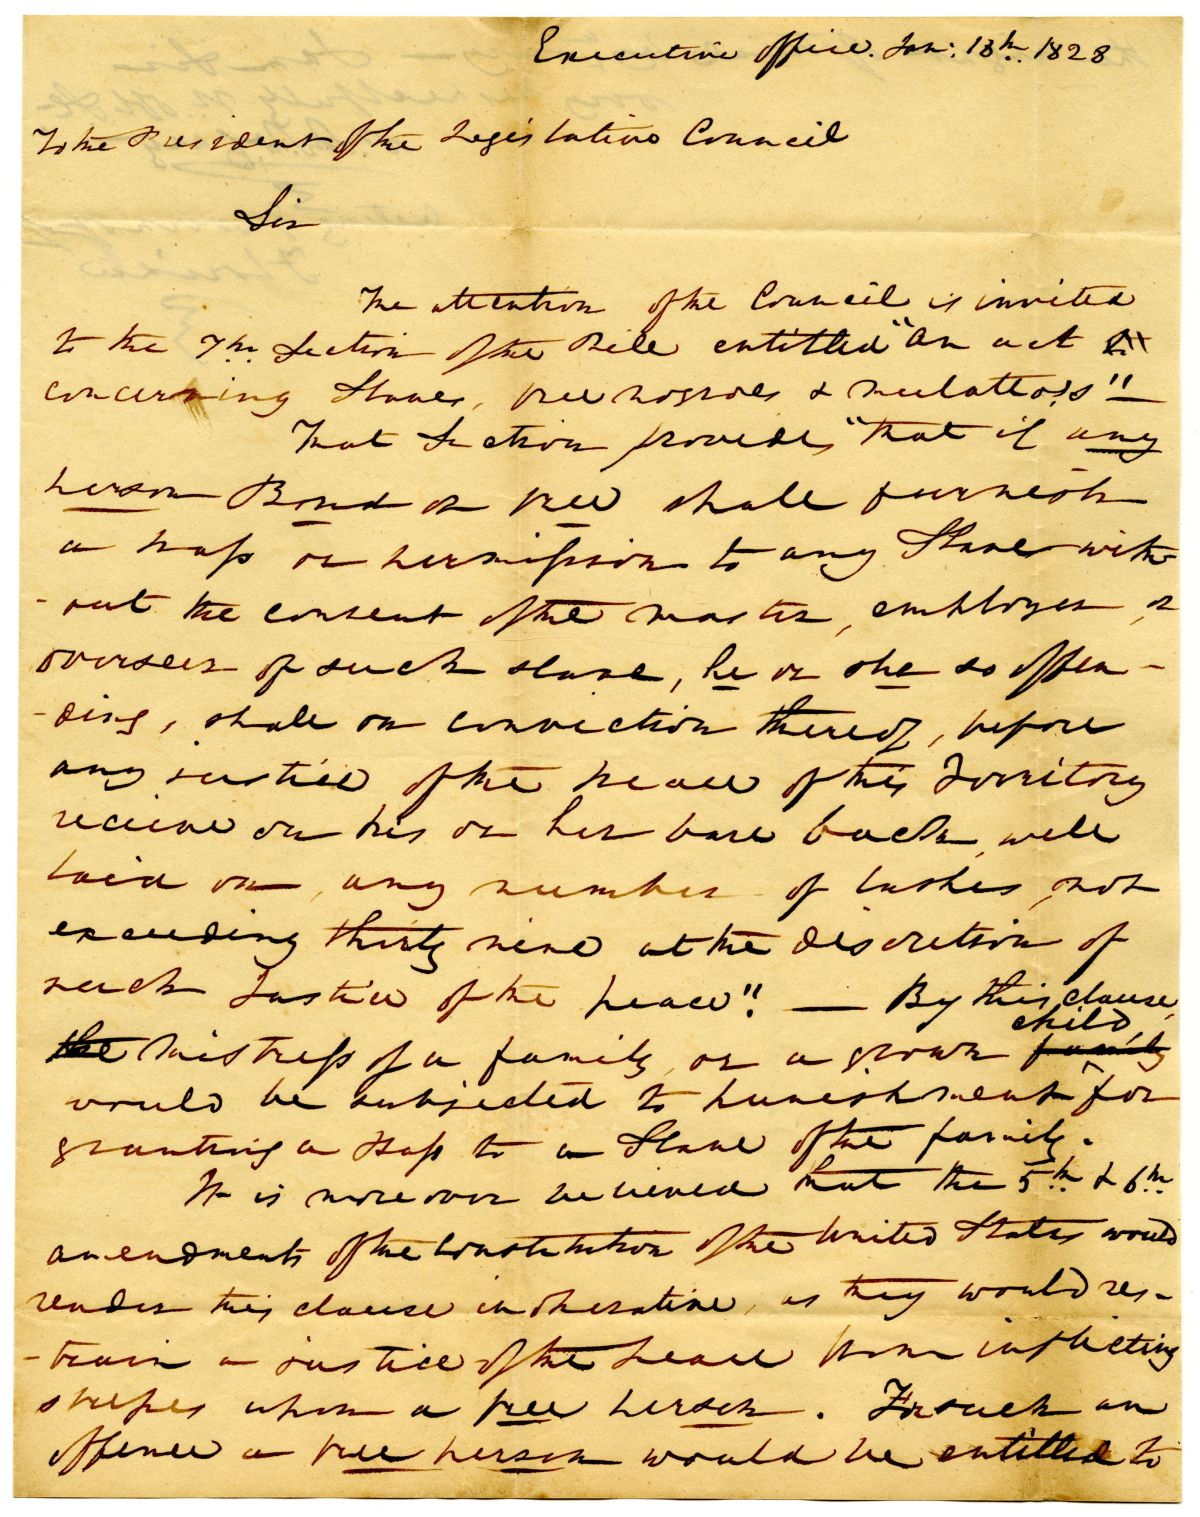 Executive office. Jan: 18th. 1828
To the President of the Legislative Council
Sir
The attention of the Council is invited
to the 7th. Section of the Bill entitled "An act
concerning Slaves, free negroes & mulattoes"
That Section provides "that if any
person Bond or free shall furnish
a pass or permission to any Slave with-
-out the consent of the master, employer, or
overseer of such slave, he or she so offen-
-ding, shall on conviction thereof, before
any justice of the peace of this Territory
receive on his or her bare back, well
laid on, any number of lashes, not
exceeding thirty nine at the discretion of
such Justice of the peace". — By this clause,
the mistress of a family, or a grown family child,
would be subjected to punishment for
granting a pass to a Slave of the family.
It is moreover believed that the 5th. & 6th.
amendments of the Constitution of the United States would
render this clause inoperative, as they would res-
-train a justice of the peace from inflicting
stripes upon a free person. For such an
offence a free person would be entitled to